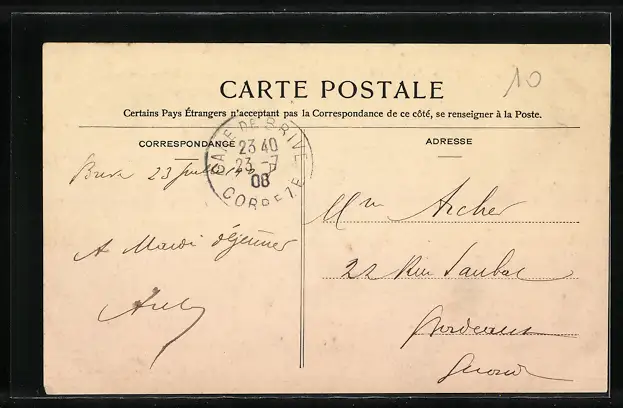 10
CARTE POSTALE
Certains Pays Étrangers n'acceptant pas la Correspondance de ce côté, se renseigner à la Poste.
CORRESPONDANCE
ADRESSE
GARE DE BRIVE
23 40
23 -7
08
CORREZE
Brive 23 Juillet
A Mardi déjeuner
Mr Archer
22 Rue
Bordeaux
Gironde